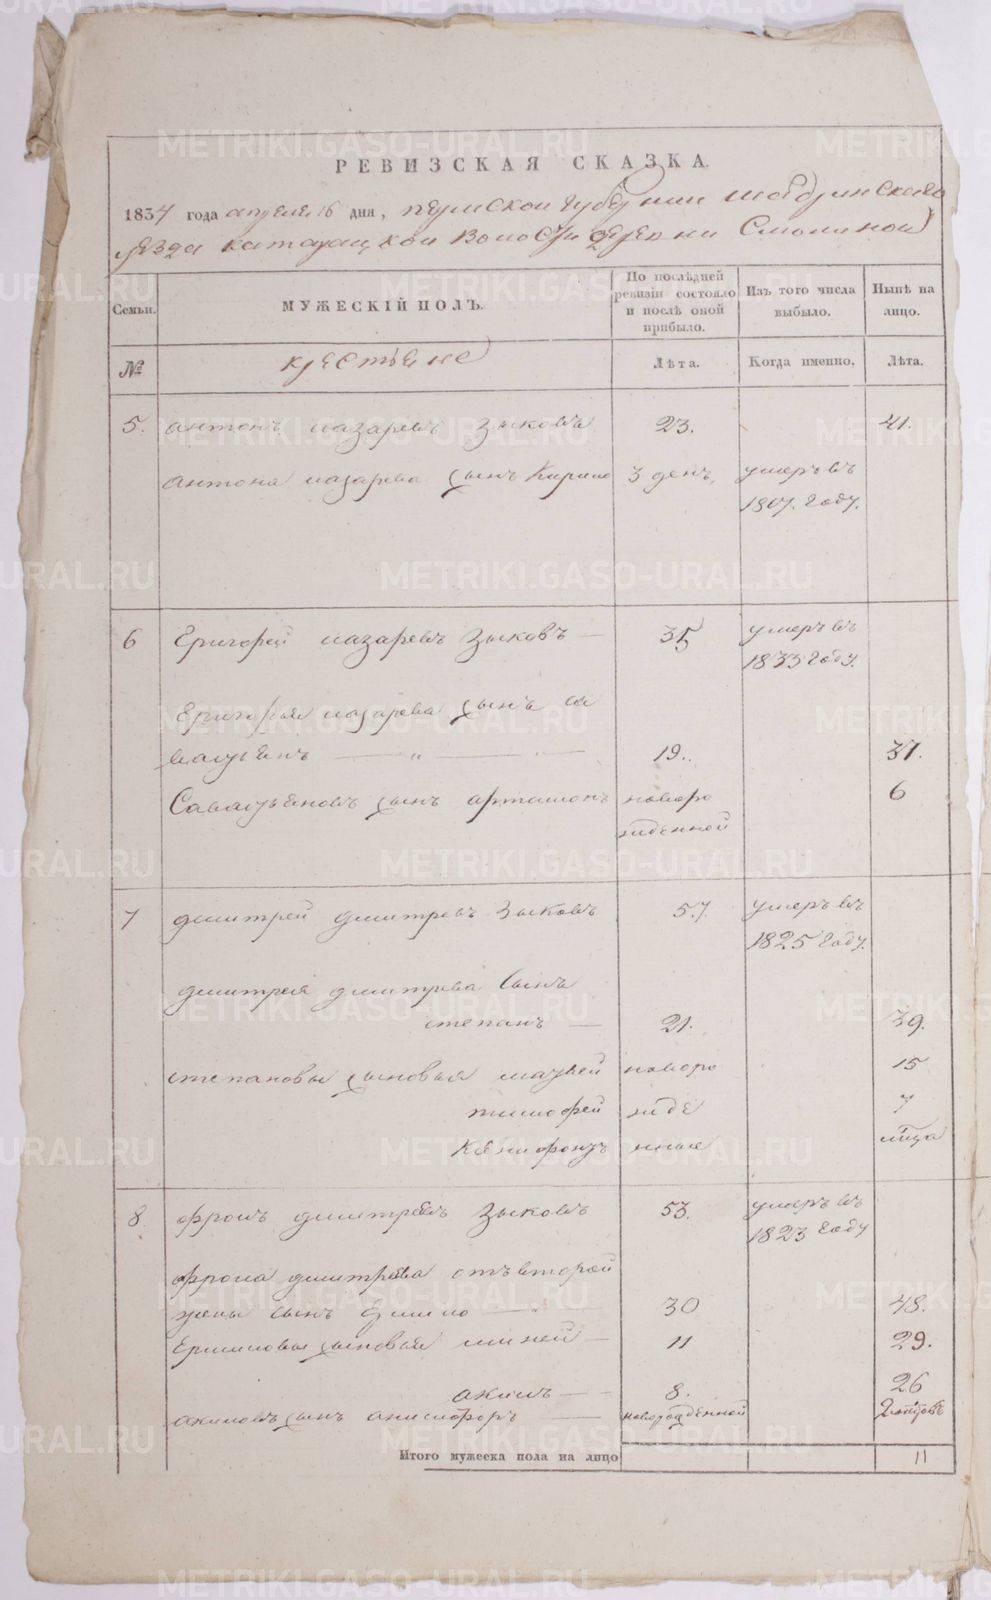 РЕВИЗСКАЯ СКАЗКА.
1834 года апреля 16 дня, пермской губернии шадринскаго
уезда катайской волости деревни Смолиной
Семьи. МУЖЕСКІЙ ПОЛЪ. По послѣдней ревизіи состояло и послѣ оной прибыло. Изъ того числа выбыло. Нынѣ на лицо.
№ крестьяне Лѣта. Когда именно. Лѣта.
5. антонъ назаревъ Зыковъ 23. 41.
антона назарева сынъ Кирило 3 день, умеръ въ
1817. Году.
6 Григорей назаревъ Зыковъ 35 умеръ въ
1833 Году.
Григорья назарева сынъ са
ватѣинъ 19.. 37.
сынъ артамонъ новоро 6
жденной
7 дмитрей дмитревъ Зыковъ 57. умеръ въ
1825 Году.
дмитрея дмитрева Сынъ
степанъ 21. 39.
степановы сыновья матвей новоро 15
тимофей жде 7
нные
8. фролъ дмитревъ Зыковъ 53. умеръ въ
1823 Году
фрола дмитрева отъ второй
жены сынъ 30 48.
сыновья 11 29.
акимъ 8. 26
акимовъ сынъ новорожденной
Итого мужеска пола на лицо 11
METRIKI.GASO-URAL.RU